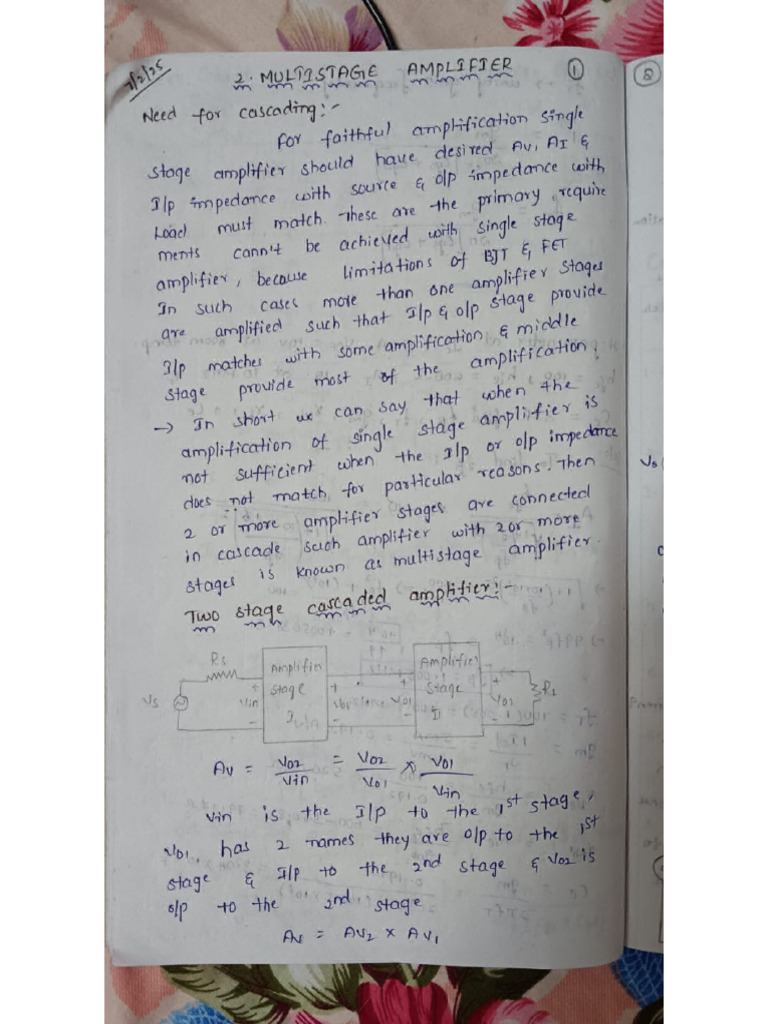 7/2/25
2. MULTISTAGE AMPLIFIER ①
Need for cascading:-
For faithful amplification single
stage amplifier should have desired Av, AI &
I/p impedance with source & o/p impedance with
Load must match. These are the primary require
ments cann't be achieved with single stage
amplifier, because limitations of BJT & FET
In such cases more than one amplifier stages
are amplified such that I/p & o/p stage provide
I/p matches with some amplification & middle
stage provide most of the amplification.
→ In short we can say that when the
amplification of single stage amplifier is
not sufficient when the I/p or o/p impedance
does not match for particular reasons. Then
2 or more amplifier stages are connected
in cascade such amplifier with 2 or more
stages is known as multistage amplifier.
Two stage cascaded amplifier:-
Rs Amplifier Stage I Amplifier Stage II
Vs + Vin - + - + Vo1 - + Vo1 - RL
Av = Vo2/Vin = Vo2/Vo1 × Vo1/Vin
Vin is the I/p to the 1st stage,
Vo1 has 2 names they are o/p to the 1st
stage & I/p to the 2nd stage & Vo2 is
o/p to the 2nd stage
Av = Av2 × Av1
②
Vs